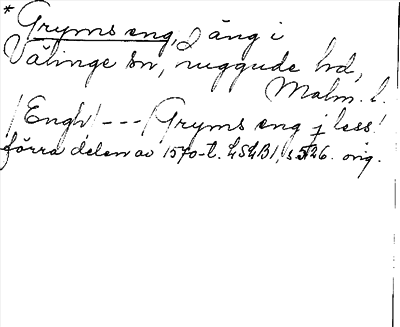 * Gryms eng, äng i
Välinge sn, Luggude hd,
Malm. l.
/Engh/ --- / Gryms eng j less!
förra delen av 1570-t. LSLB1, s 526. orig.